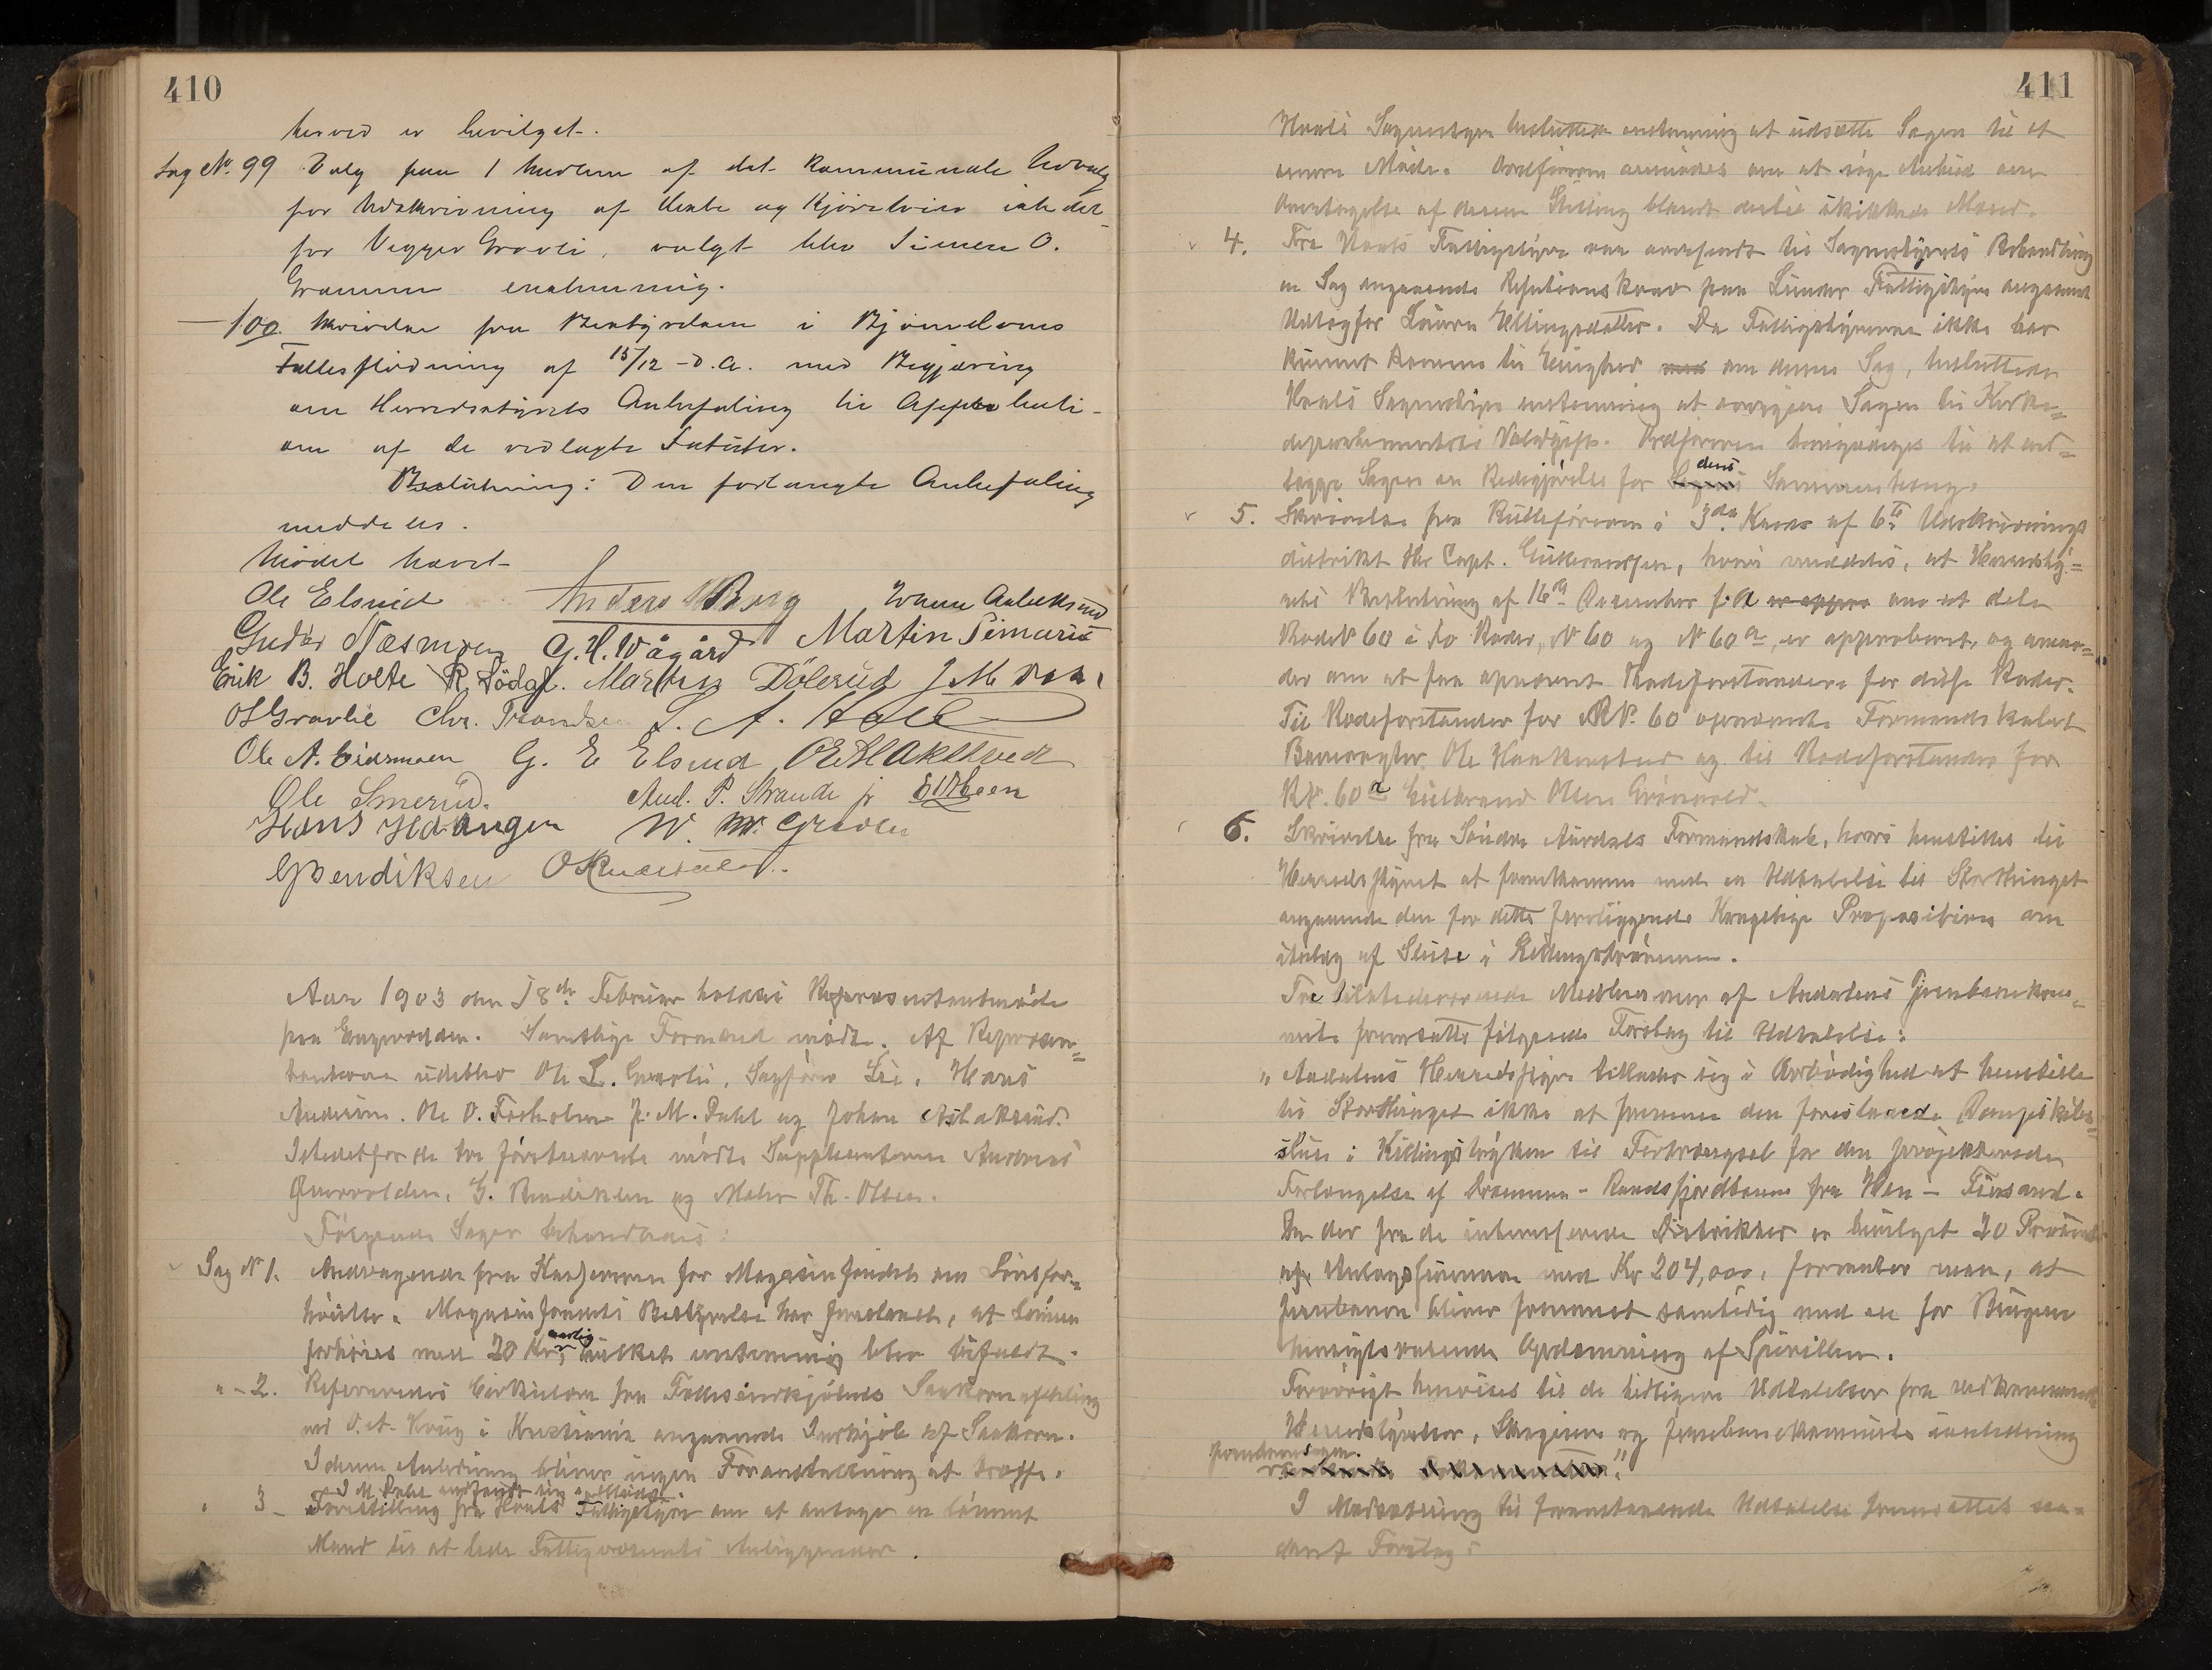 410
herved er bevilget.
Sag No. 99 Valg paa 1 Medlem af det kommunale Udvalg
for Udskrivning af Heste og Kjöretöier istedet
for Vegger Gravli, valgt blev Simen O.
Grammen enstemmig.
— 100. Skrivelse fra Bestyrelsen i Bjöneelvens
Fællesflödning af 15/12 d.A. med Begjæring
om Herredsstyrets Anbefaling til Approbati-
on af de vedlagte Statuter.
Beslutning: Den forlangte Anbefaling
meddeles.
Mödet hævet
Ole Elsrud Anders Berg Johan Aslaksrud
Gudbr Næsmoen G. H. Vågård Martin Simarud
Erik B. Holte R. Födaf. Martin Dölerud J M Dahl
OLGravlie Chr. Trondsen L. A. Hall
Ole A. Eidsmoen G. E Elsrud OEHAkthved
Ole Smerud. And. P. Strande jr
Hans Hadangen N. Gravli
GBendiksen
Aar 1903 den 18de Februar holdtes Repræsentantmöde
paa Engvodden. Samtlige Formænd mödte. Af Repræsen=
tanterne udeblev Ole L. Gravli, Sagförer Lie, Hans
Andersen, Ole O. Fosholm J. M. Dahl og Johan Aslaksrud.
Istedetfor de tre förstnævnte mödte Suppleanterne Andreas
Qvervolden, G. Bendiksen og Maler Th. Olsen.
Fölgende Sager behandledes:
Sag No 1. Andragende fra Kasserer for Magasinfondet om Lönsfor=
höielse. Magasinfondets Bestyrelse har foreslaaet, at Lönnen
forhöies med 20 Kr. aarlig, hvilket enstemmig blev bifaldt.
" - 2. Refereredes Cirkulære fra Fællesindkjöbets Saakornafdeling
ved O. A. Krug i Kristiania angaaende Indkjöb af Saakorn.
I denne Anledning bliver ingen Foranstaltning at træffe.
J M Dahl indfandt sig i Mödet.
" 3 - Forestilling fra Hovals Fattigstyre om at antage en lönnet
Mand til at lede Fattigvæsenets Anliggender.
411
Sognestyre besluttede enstemmig at udsætte Sagen til et
senere Möde. Ordföreren anmodes om at söge Anbud om
Overtagelse af denne Stilling blandt dertil skikkede Mænd.
4. Fra Fattigstyre var oversendt til Sognestyrets Behandling
en Sag angaaende Refusionskrav fra Lunder Fattigstyre angaaende
Udlæg for Laura Ellingsdatter. Da Fattigstyrerne ikke har
kunnet komme til Enighed med om denne Sag, besluttede
Sognestyre enstemmig at overgive Sagen til Kirke=
departementets Voldgift. Ordföreren bemyndiges til at ved=
lægge Sagen en Redegjörelse for dens Sammenhæng.
5. Skrivelse fra Rulleföreren i 3die Kreds af 6te Udskrivnings
distrikt Hr Capt. Gulbrandsen, hvori meddeles, at Herredsty=
rets Beslutning af 16de December f.A er appro om at dele
Rode No 60 i to Roder, No 60 og No 60a, er approberet, og anmo=
der om at faa opnævnt Rodeforstandere for disse Roder.
Til Rodeforstander for RNo. 60 opnævnte Formandskabet
Banevogter Ole Haakenstad og til Rodeforstander for
RNo. 60a Gulbrand Olsen Grönvold.
6. Skrivelse fra Söndre Aurdals Formandskab, hvori henstilles til
Herredsstyret at fremkomme med en Udtalelse til Storthinget
angaaende den for dette foreliggende Kongelige Proposition om
Anlæg af Sluse i Killingströmmen.
Tre tilstedeværende Medlemmer af Aadalens Jernbanekom=
mite fremsatte fölgende Forslag til Udtalelse:
"Aadalens Herredsstyre tillader sig i Ærbödighed at henstille
til Storthinget ikke at fremme den foreslaaede Dampskibs=
sluse i Killingstryken til Fortrængsel for den projekterede
Forlængelse af Drammen - Randsfjordbanen fra Hen - Finsand.
Da der fra de interesserede Distrikter er bevilget 20 Procent
af Anlægssummen med Kr 204,000, forventer man, at
Jernbanen bliver fremmet samtidig med en for Bruger
hensigtsvarende Opdæmning af Sperillen.
Forövrigt henvises til de tidligere Udtalelser fra vedkommende
Herredsstyrelser, Skogeiere og Jernbanekommiteer i anledning
Jernbanesagen."
I Modsætning til foranstaaende Udtalelse fremsattes saa=
dant Forslag: